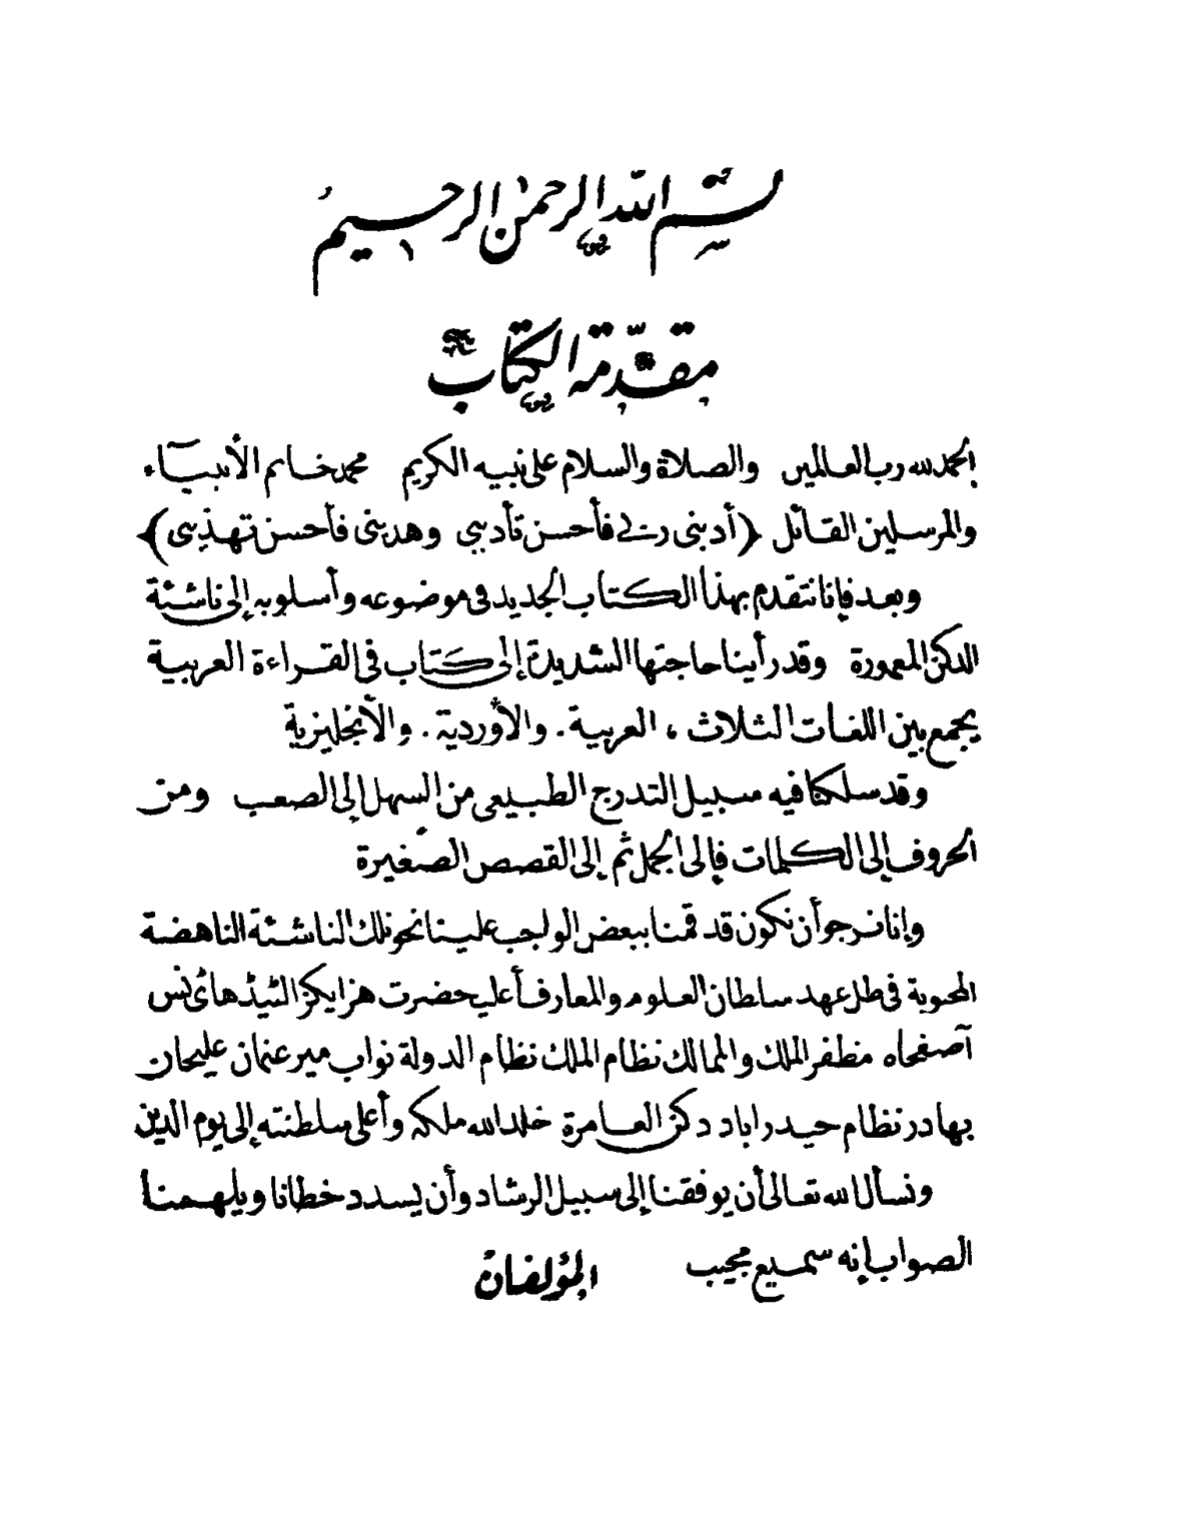 بسم الله الرحمن الرحيم
مقدّمة الكتاب
الحمد لله رب العالمين والصلاة والسلام على نبيه الكريم محمد خاتم الأنبياء
والمرسلين القائل (أدبنى ربى فأحسن تأديبى وهدبنى فأحسن تهذيبى)
وبعد فإنا نتقدم بهذا الكتاب الجديد فى موضوعه وأسلوبه إلى ناشئة
الدكن المعمورة وقد رأينا حاجتها الشديدة إلى كتاب فى القراءة العربية
يجمع بين اللغات الثلاث ، العربية . والأوردية . والأنجليزية
وقد سلكنا فيه سبيل التدرج الطبيعى من السهل إلى الصعب ومن
الحروف إلى الكلمات فإلى الجمل ثم إلى القصص الصغيرة
وإنا نرجو أن نكون قد قمنا ببعض الواجب علينا نحو تلك الناشئة الناهضة
المحبوبة فى ظل عهد سلطان العلوم والمعارف أعليحضرت هز ايكزالٹيڈ هائ نس
آصفجاه مظفر الملك والممالك نظام الملك نظام الدولة نواب مير عثمان عليخان
بهادر نظام حيدراباد دكن العامرة خلد الله ملكه وأعلى سلطنته إلى يوم الدين
ونسأل الله تعالى أن يوفقنا إلى سبيل الرشاد وأن يسدد خطانا ويلهمنا
الصواب إنه سميع مجيب المؤلفان